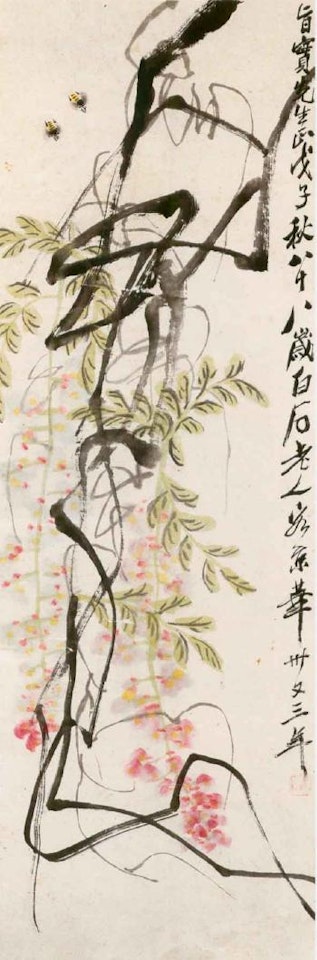 旨寶先生正戊子秋八十八歲白石老人客京華卅又三年